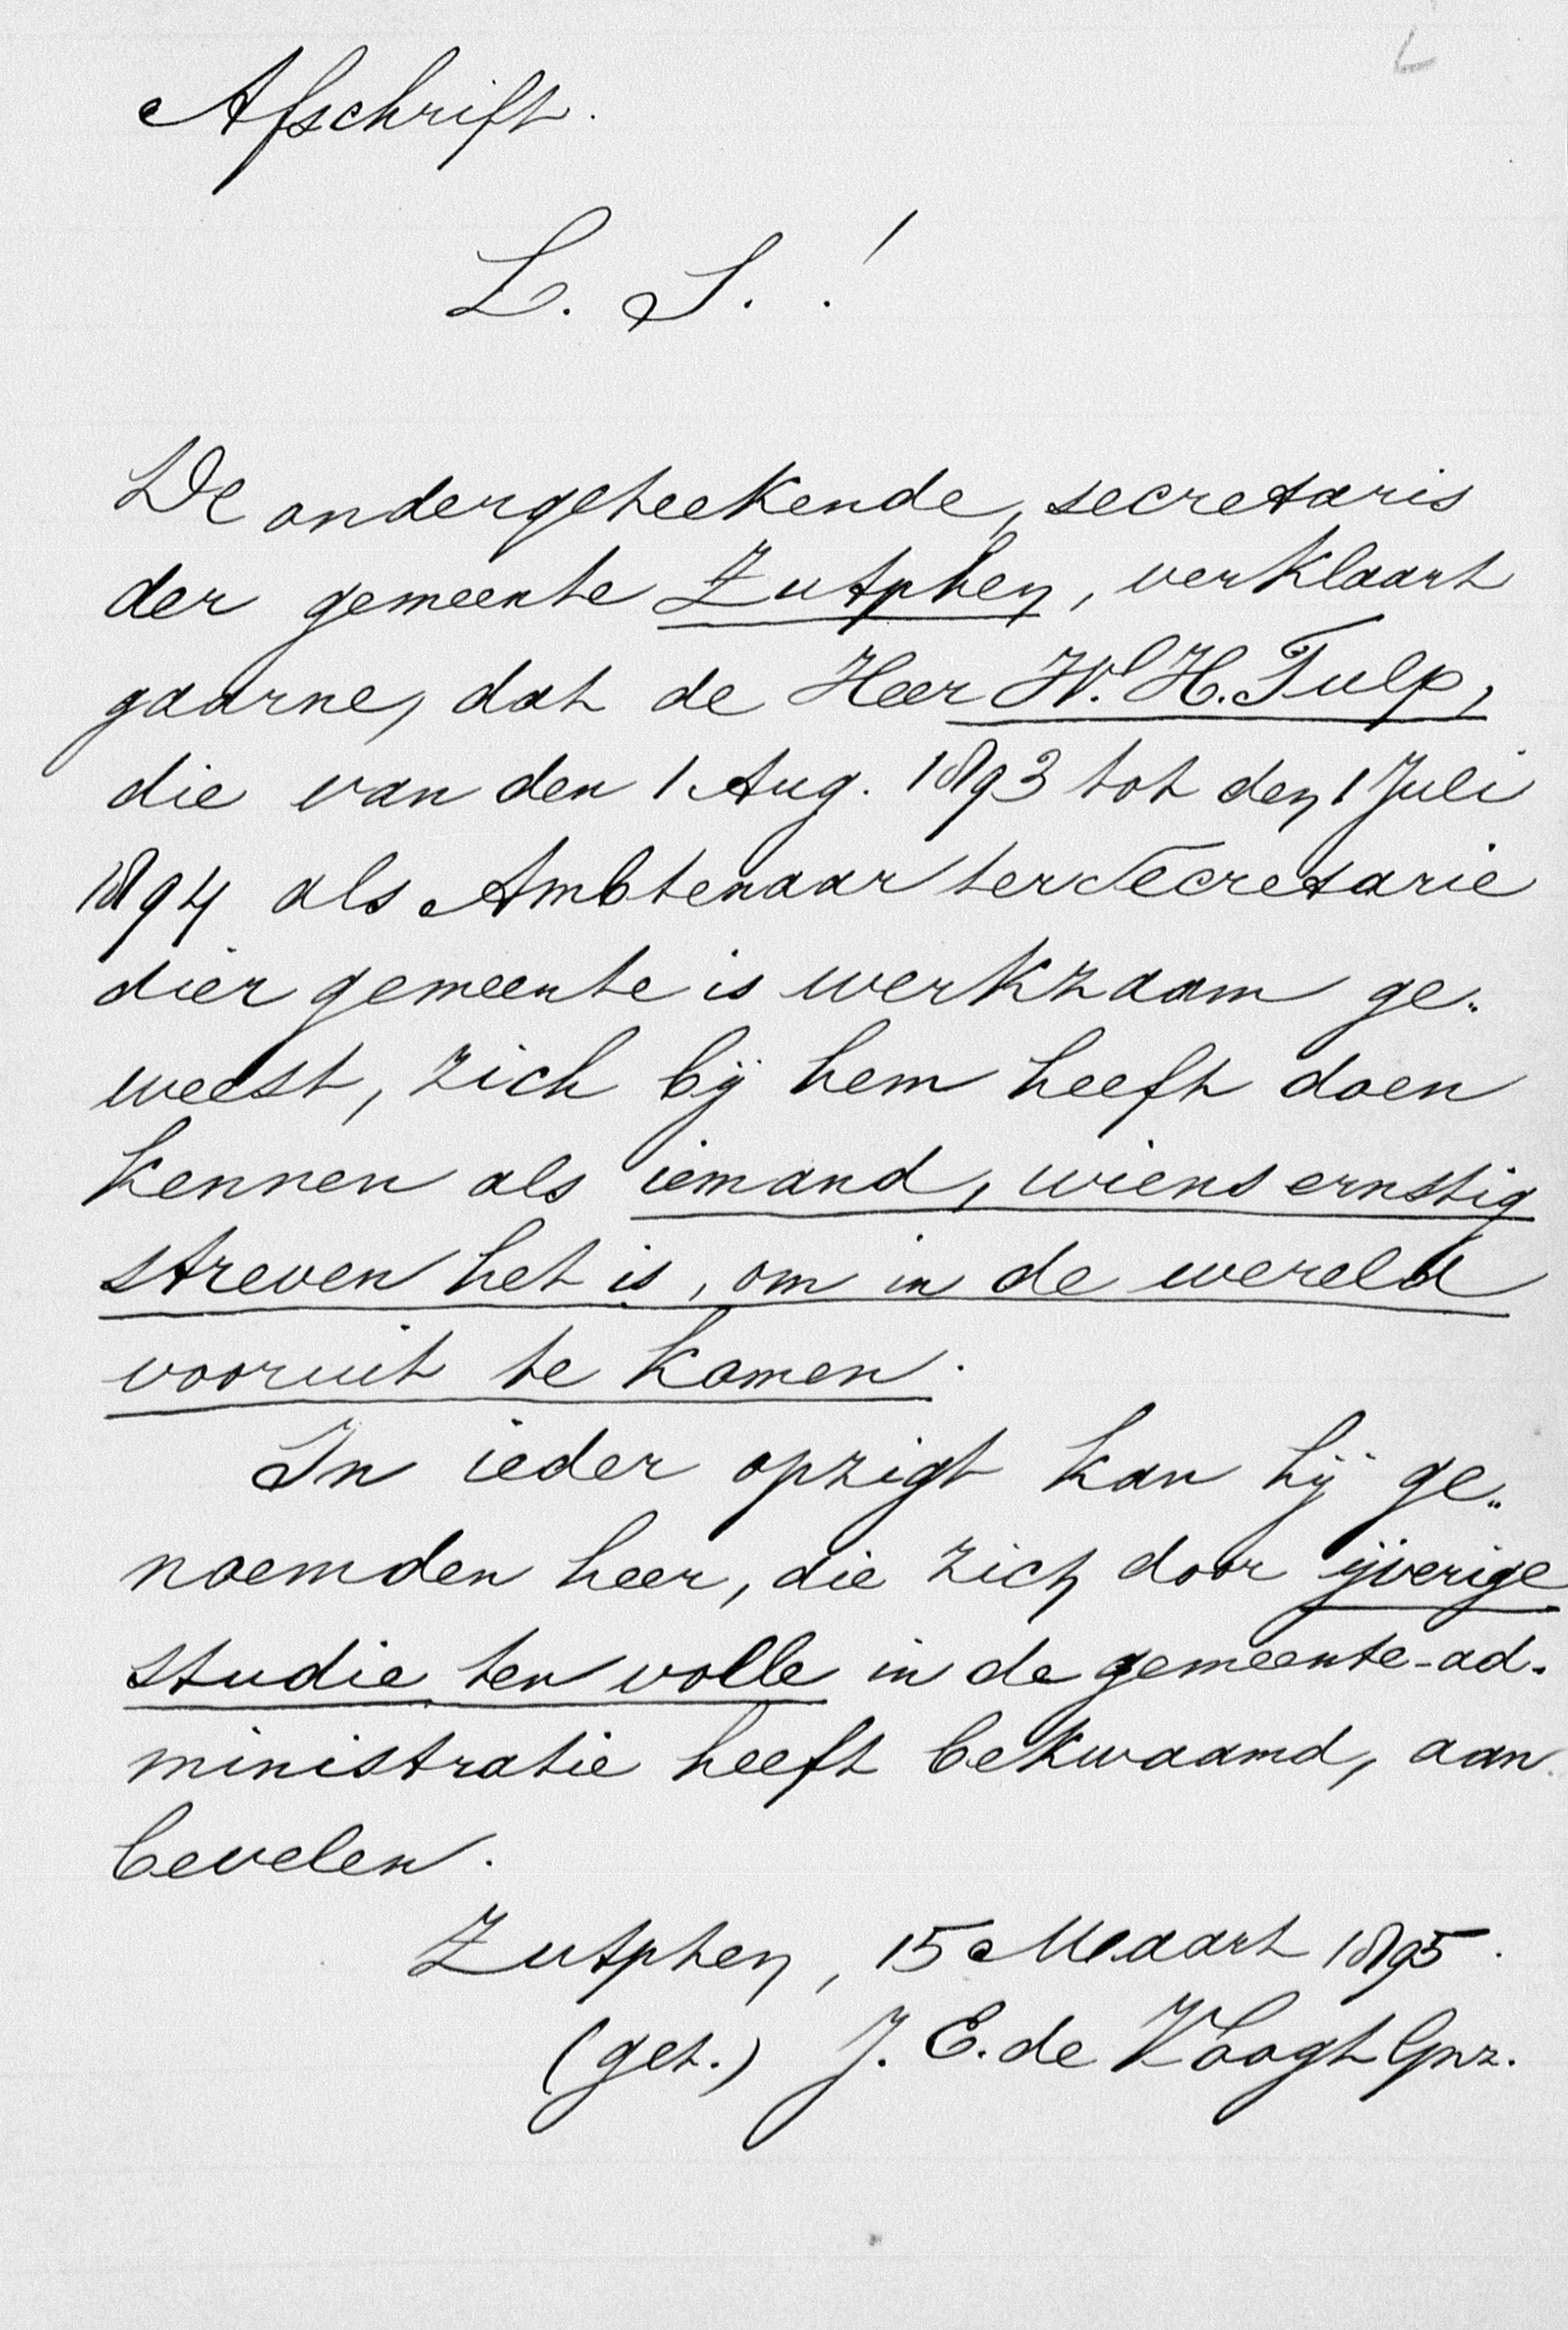 Afschrift.
L. S. !
De ondergeteekende, secretaris
der gemeente Zutphen, verklaart
gaarne, dat de Heer W. H. Tulp,
die van den 1 Aug. 1893 tot den 1 Juli
1894 als Ambtenaar ter Secretarie
dier gemeente is werkzaam ge„
weest, zich bij hem heeft doen
kennen als iemand, wiens ernstig
streven het is, om in de wereld
vooruit te komen.
In ieder opzigt kan hij ge„
noemden heer, die zich door ijverige
studie ten volle in de gemeente-ad-
ministratie heeft bekwaamd, aan
bevelen.
Zutphen, 15 Maart 1895.
(get.) J. E. de Voogt Gnz.